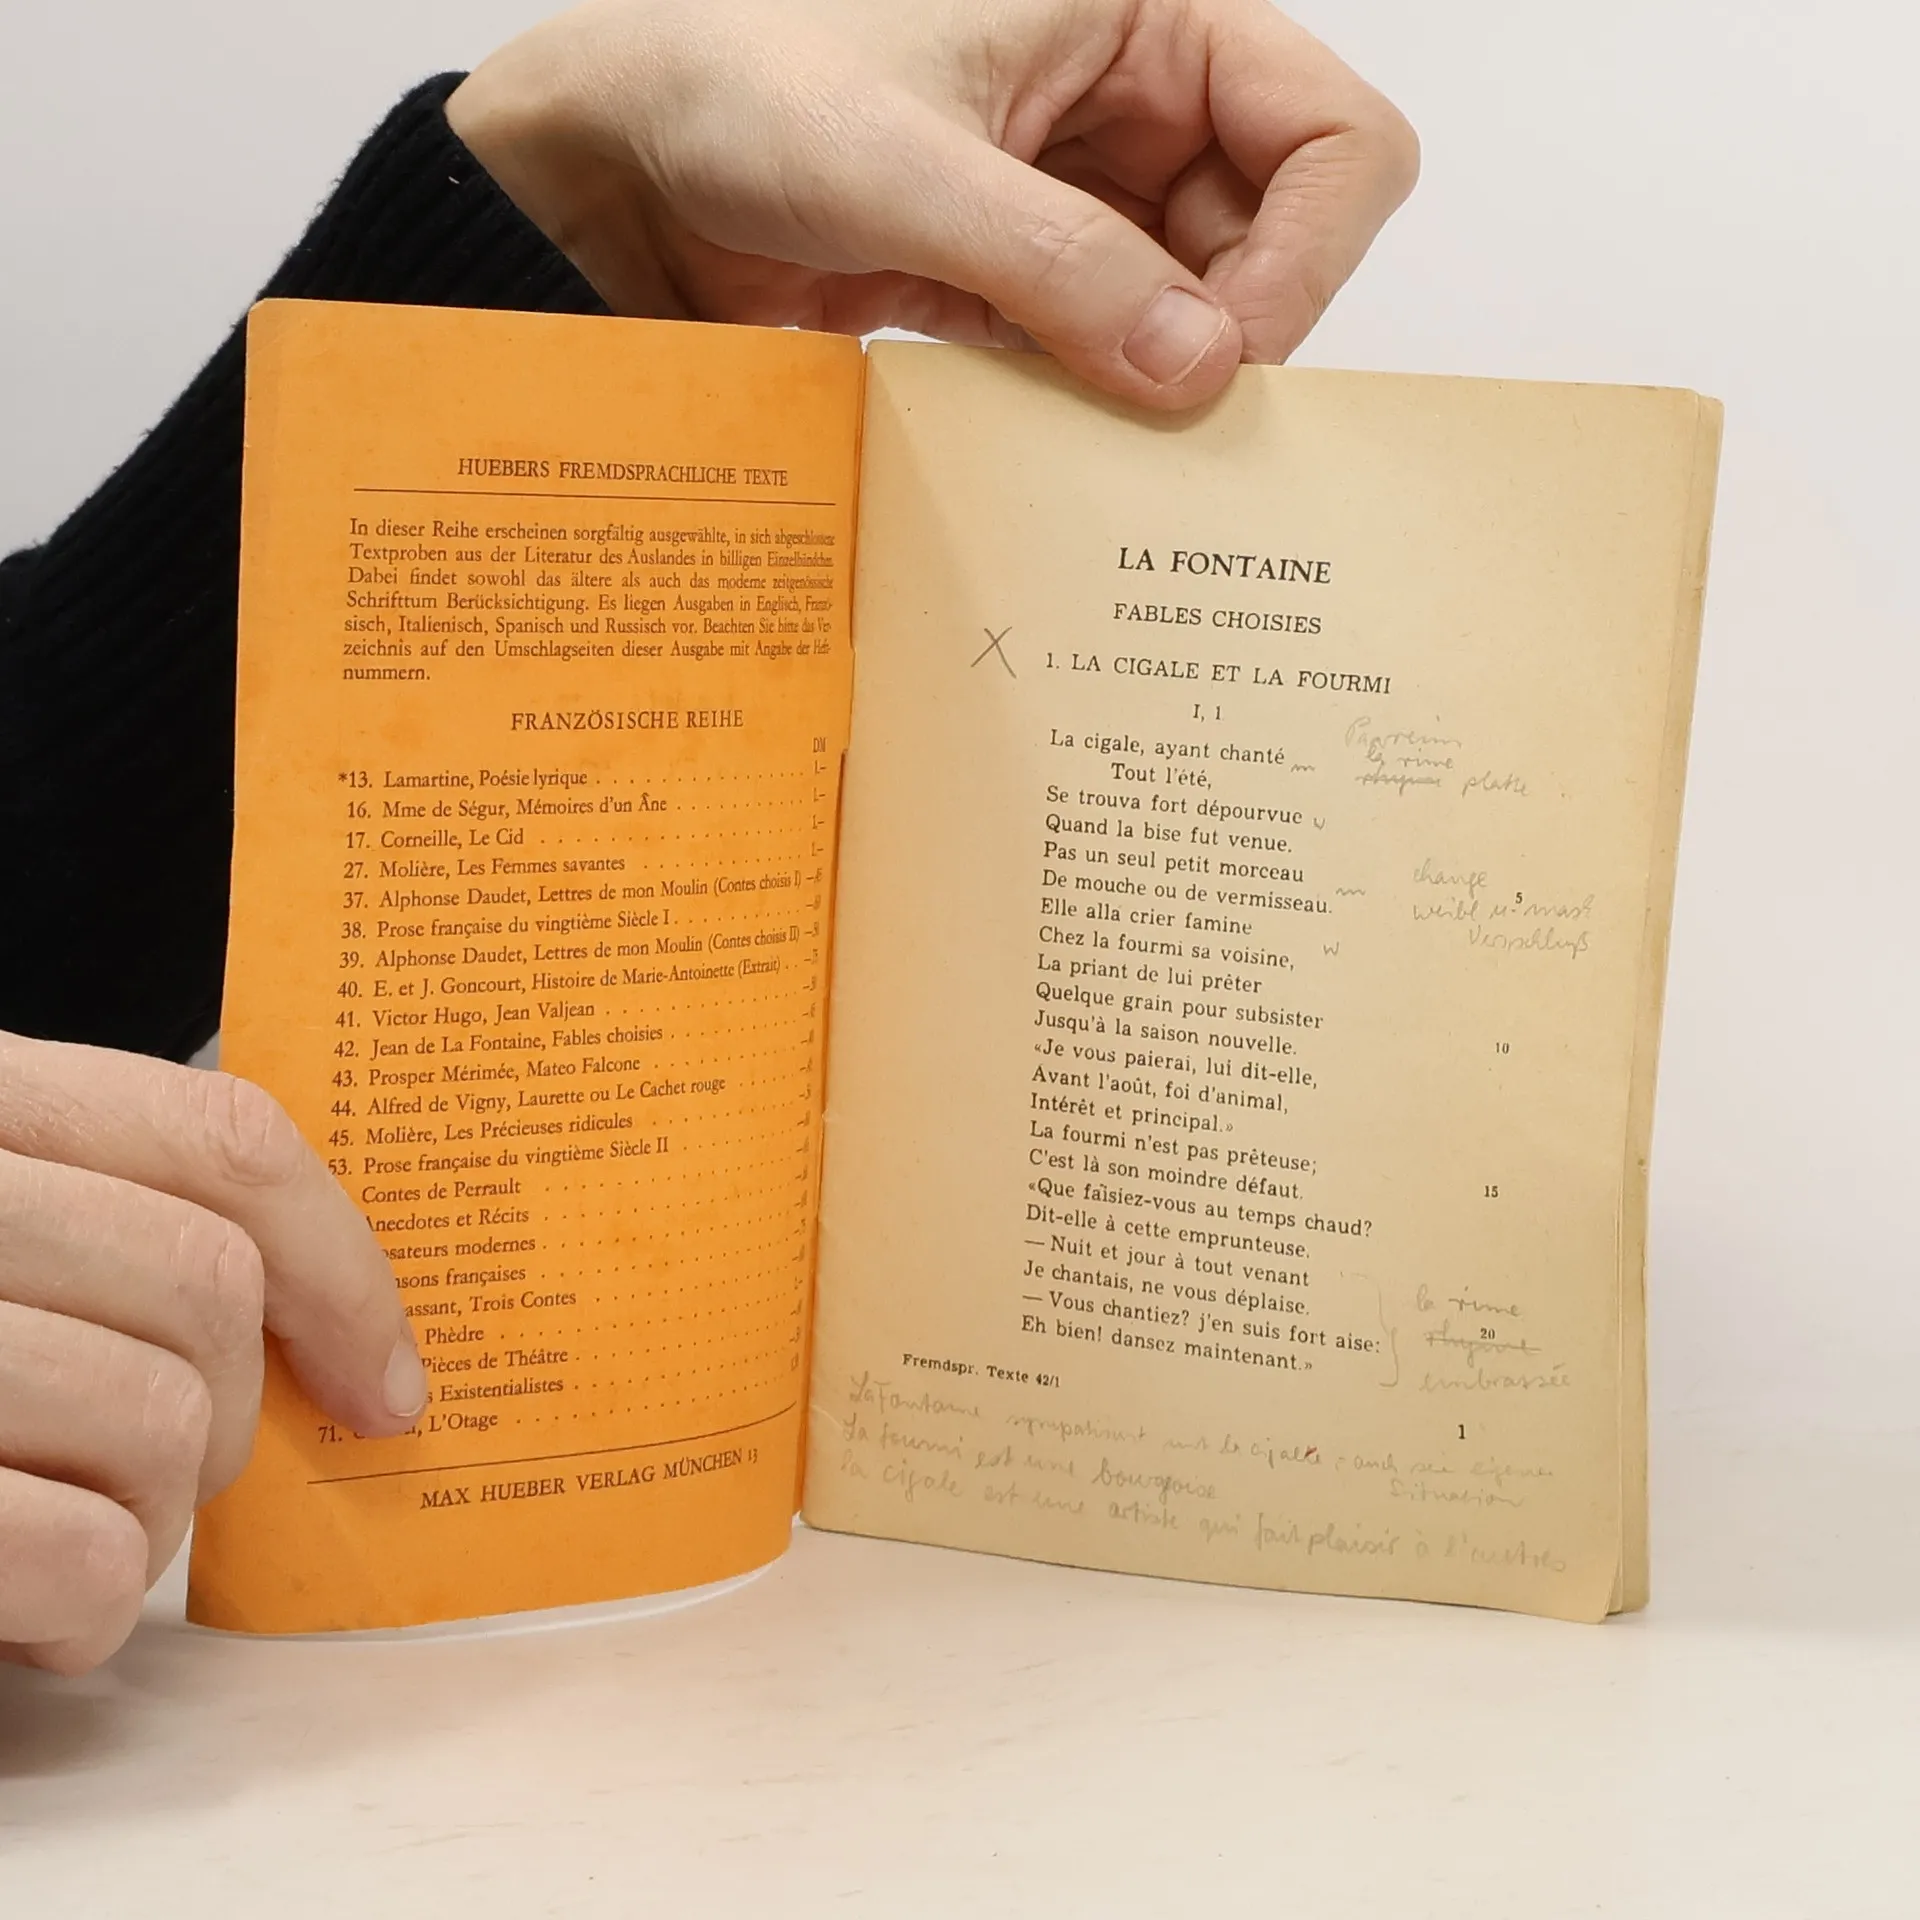 HUEBERS FREMDSPRACHLICHE TEXTE
In dieser Reihe erscheinen sorgfältig ausgewählte, in sich abgeschlossene
Textproben aus der Literatur des Auslandes in billigen Einzelbändchen.
Dabei findet sowohl das ältere als auch das moderne zeitgenössische
Schrifttum Berücksichtigung. Es liegen Ausgaben in Englisch, Franzö-
sisch, Italienisch, Spanisch und Russisch vor. Beachten Sie bitte das Ver-
zeichnis auf den Umschlagseiten dieser Ausgabe mit Angabe der Heft-
nummern.
FRANZÖSISCHE REIHE
DM
*13. Lamartine, Poésie lyrique . . . . . . . . . . . . 1.–
16. Mme de Ségur, Mémoires d'un Âne . . . . . . . . 1.–
17. Corneille, Le Cid . . . . . . . . . . . . 1.–
27. Molière, Les Femmes savantes . . . . . . . . . . 1.–
37. Alphonse Daudet, Lettres de mon Moulin (Contes choisis I)
38. Prose française du vingtième Siècle I . . . . . . . .
39. Alphonse Daudet, Lettres de mon Moulin (Contes choisis II)
40. E. et J. Goncourt, Histoire de Marie-Antoinette (Extrait) . .
41. Victor Hugo, Jean Valjean . . . . . . . . . . .
42. Jean de La Fontaine, Fables choisies . . . . . . . .
43. Prosper Mérimée, Mateo Falcone . . . . . . . . .
44. Alfred de Vigny, Laurette ou Le Cachet rouge . . . . .
45. Molière, Les Précieuses ridicules . . . . . . . . .
53. Prose française du vingtième Siècle II . . . . . . .
Contes de Perrault . . . . . . . . . . . .
Anecdotes et Récits . . . . . . . . . . . .
modernes . . . . . . . . . . . .
françaises . . . . . . . . . . . .
Trois Contes . . . . . . . . . .
Phèdre . . . . . . . . . . . . .
Pièces de Théâtre . . . . . . . . . .
Existentialistes . . . . . . . . . .
71. L'Otage . . . . . . . . . . . .
MAX HUEBER VERLAG MÜNCHEN 13
LA FONTAINE
FABLES CHOISIES
X 1. LA CIGALE ET LA FOURMI
I, 1
La cigale, ayant chanté m Paarreim
Tout l'été, la rime platte
Se trouva fort dépourvue w
Quand la bise fut venue.
Pas un seul petit morceau change 5
De mouche ou de vermisseau. m weibl u. mask
Elle alla crier famine Versschluß
Chez la fourmi sa voisine, w
La priant de lui prêter
Quelque grain pour subsister 10
Jusqu'à la saison nouvelle.
«Je vous paierai, lui dit-elle,
Avant l'août, foi d'animal,
Intérêt et principal.»
La fourmi n'est pas prêteuse; 15
C'est là son moindre défaut.
«Que faisiez-vous au temps chaud?
Dit-elle à cette emprunteuse.
— Nuit et jour à tout venant
Je chantais, ne vous déplaise. la rime 20
— Vous chantiez? j'en suis fort aise: embrassée
Eh bien! dansez maintenant.»
Fremdspr. Texte 42/1
1
La Fontaine sympathisiert mit la cigale, auch seine eigene
Situation
La fourmi est une bourgoise
la cigale est une artiste qui fait plaisir à l'autres